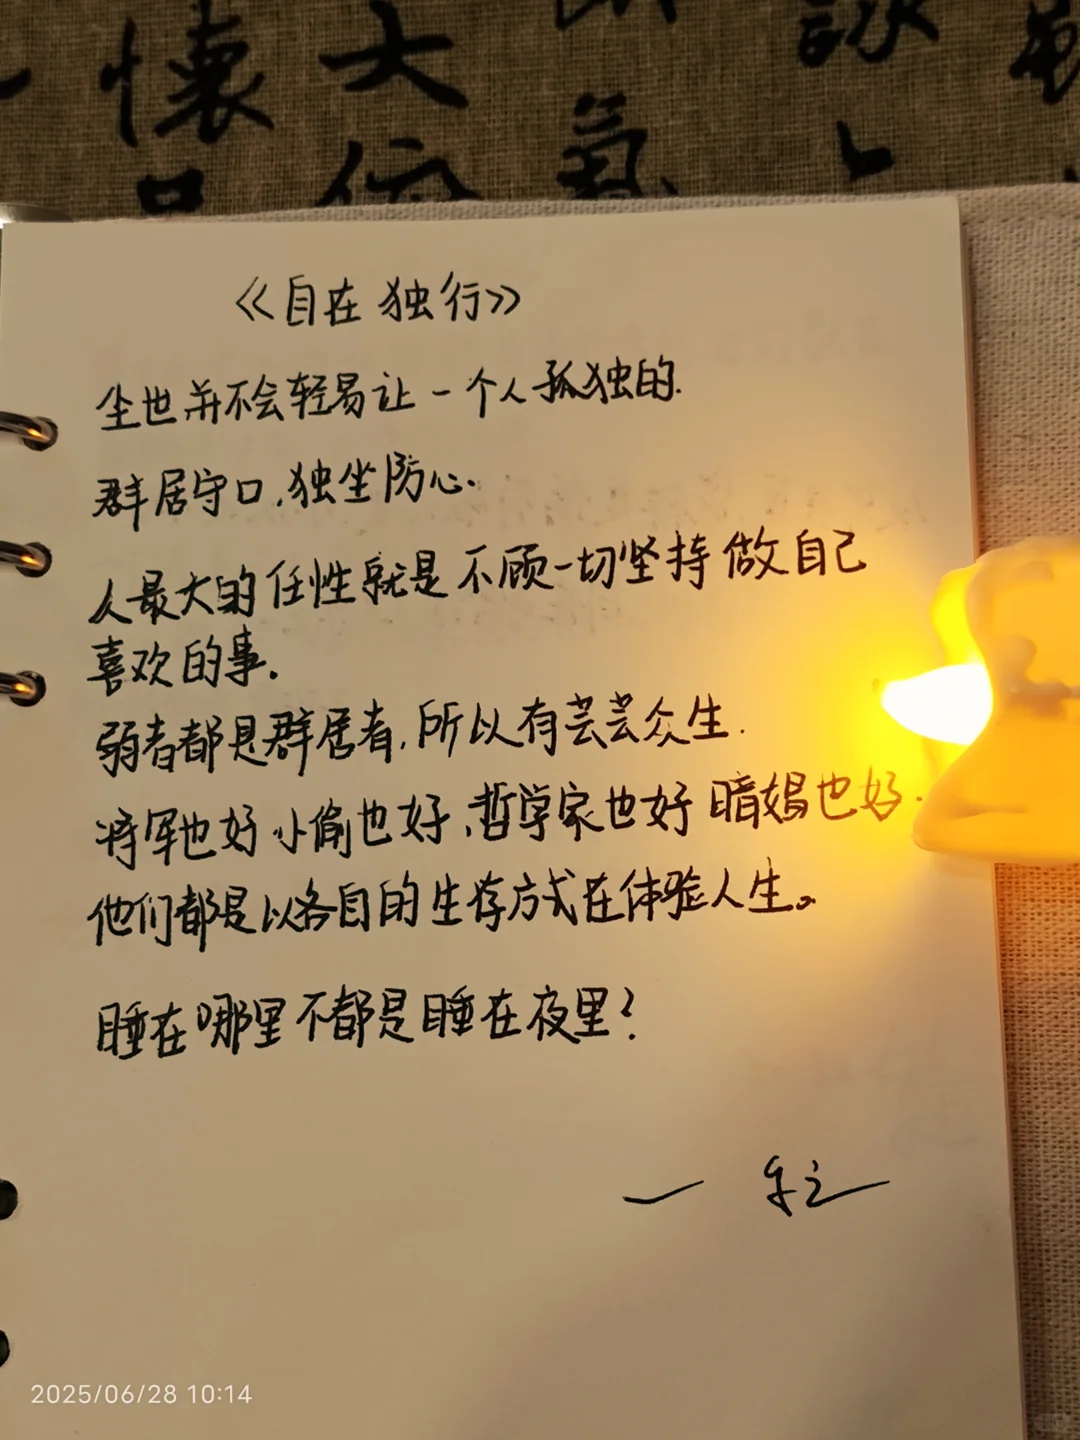 懷
大
氣
詠
《自在独行》
尘世并不会轻易让一个人孤独的.
群居守口,独坐防心.
人最大的任性就是不顾一切坚持做自己
喜欢的事.
弱者都是群居者,所以有芸芸众生.
将军也好 小偷也好,哲学家也好 暗娼也好.
他们都是以各自的生存方式在体验人生。
睡在哪里不都是睡在夜里?
2025/06/28 10:14